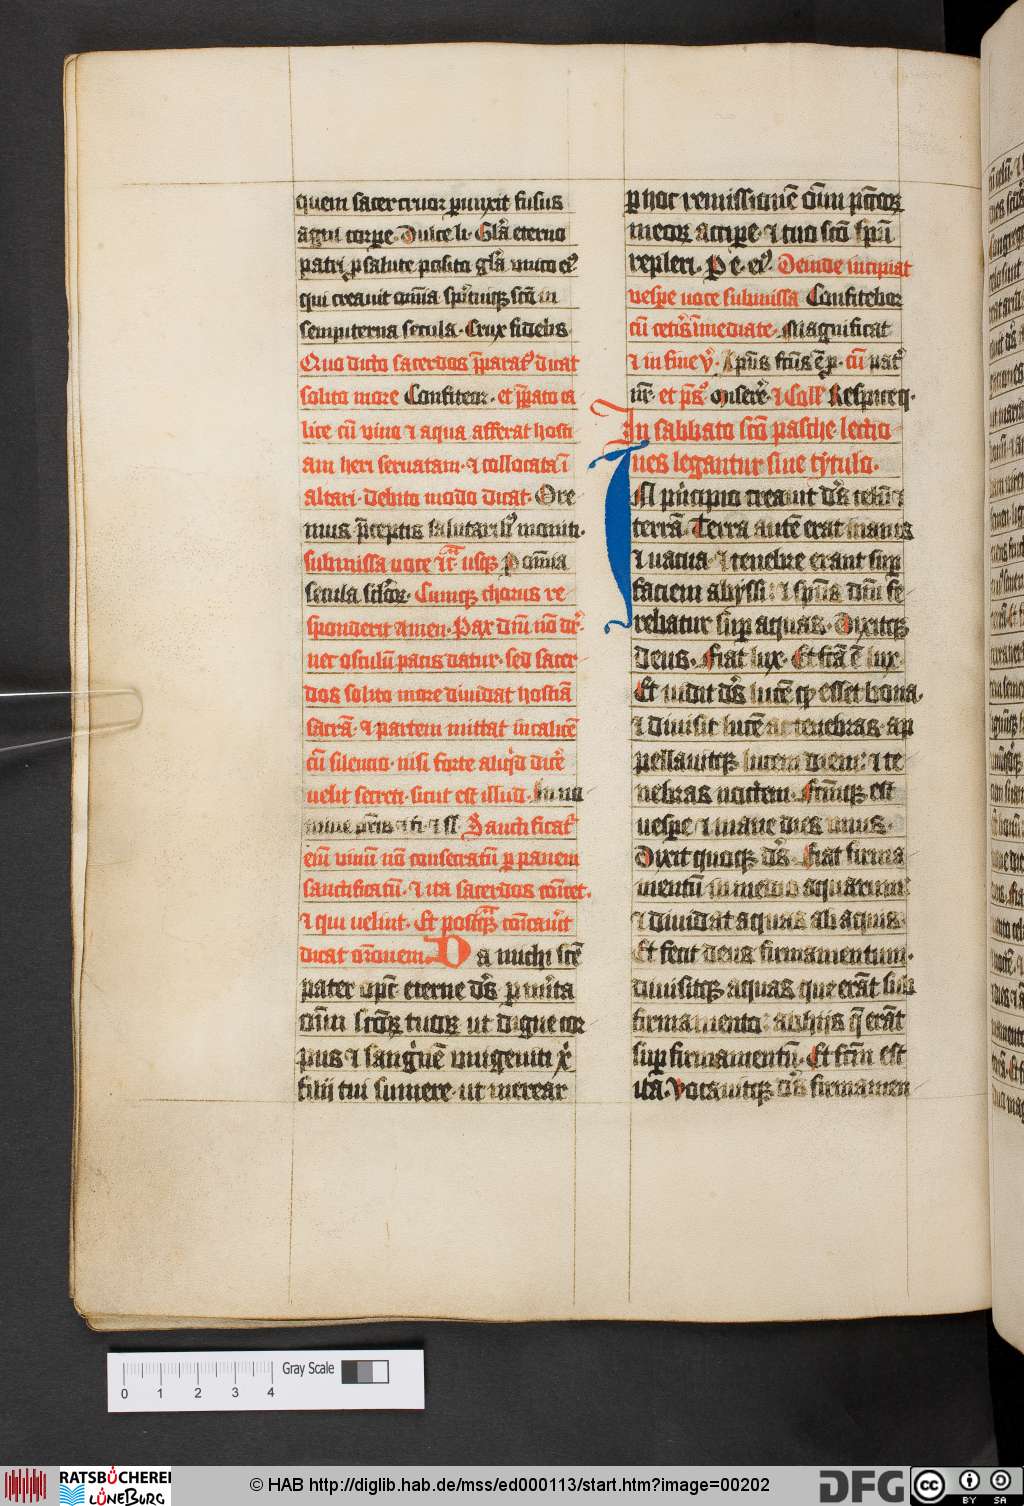 quem sacer cruor perunxit fusus
agni corpore · Dulce li · Gl̄a eterno
patri p̱ salute posita gl̄a unico eiꝰ
qui creavit omīa spūmꝫ scōm in
sempiterna secula · Crux fidelis
Quo dicto sacerdos p̄paratꝰ dicat
solito more Confiteor · et p̄pato ca
lice cū vino ⁊ aqua afferat hosti
am heri servatam · ⁊ collocata ī
altari · debito modo dicat · Ore
mus p̄ceptis salutaribꝰ moniti ·
submissa voce usqꝫ P omīa
secula sclōꝝ · Cumqꝫ chorus re
sponderit amen · Pax dn̄i nō dr̄
nec osculū pacis datur · sed sacer
dos solito more dividat hostiā
sacrā · ⁊ partem mittat in calicē
cū silencio · nisi forte aliqͥd dicͤe
velit secreti · sicut est illud · In no
mine pr̄is ⁊ fi · ⁊ sp̄ Sanctificatᷣ
eī vinū nō consecratū ꝑ panem
sanctificatū · ⁊ ita sacerdos cōīcet ·
⁊ qui velint · Et postqᷓ cōīcavͥit
dicat orōnem · Da michi scē
pater op̄c eterne dꝰs ꝑ mīta
om̄i scōꝝ tuoꝝ ut digne cor
pus ⁊ sangͥnē unigeniti xͥ
filij tui sumere · ut merear
ꝑ hoc remissionē om̄i pc̄toꝝ
meoꝝ accipe · ⁊ tuo scō spū
repleri · P e · eiꝰ · Deinde incipiat
vespe voce submissa Confitebor
cū cetis īmediate · Magnificat
⁊ in fine v̾ · Xpus fcūs ē p · cū patͬ
nr̄ · et ps̄ · Miserͤe · ⁊ Coll Respiceqꝫ ·
In sabbato scō pasche lectio
nes legantur sine tytulo ·
IN pͥncipio creavit dꝰs celū ⁊
terrā · Terra autē erat inanis
⁊ vacua · ⁊ tenebre erant sup̱
faciem abyssi : ⁊ spūs dn̄i fe
rebatur sup̱ aquas · Dixitqꝫ
deus · Fiat lux · Et fcā ē lux ·
Et vidit dꝰs lucē qꝫ esset bona ·
⁊ divisit lucē ac tenebras · ap
pellavitqꝫ lucem diem : ⁊ te
nebras noctem · Fcūmqꝫ est
vespe ⁊ mane dies unus ·
Dixit quoqꝫ dꝰs · Fiat firma
mentū in medio aquarum :
⁊ dividat aquas ab aquis ·
Et fecit deus firmamentum ·
divisitqꝫ aquas que erāt sub
firmamento : ab hijs q̄ erāt
sup̱ firmamentū · Et fcm̄ est
ita · Vocavitqꝫ dꝰs firmamen
0 1 2 3 4
Gray Scale
RATSBÜCHEREI
LÜNEBURG
© HAB http://diglib.hab.de/mss/ed000113/start.htm?image=00202
DFG
cc BY SA